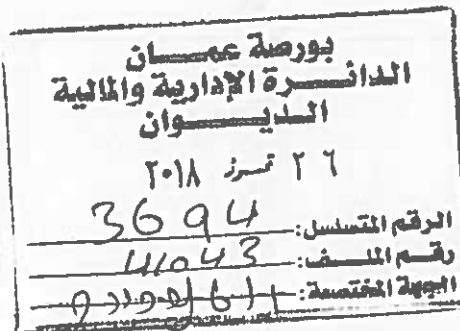 بورصة عمـــان
الدائـــرة الإدارية والمالية
الديـــــوان
٢٦ تمـوز ٢٠١٨
الرقم المتسلسل: 3694
رقـم الملـــف: 41043
الجهة المختصة: